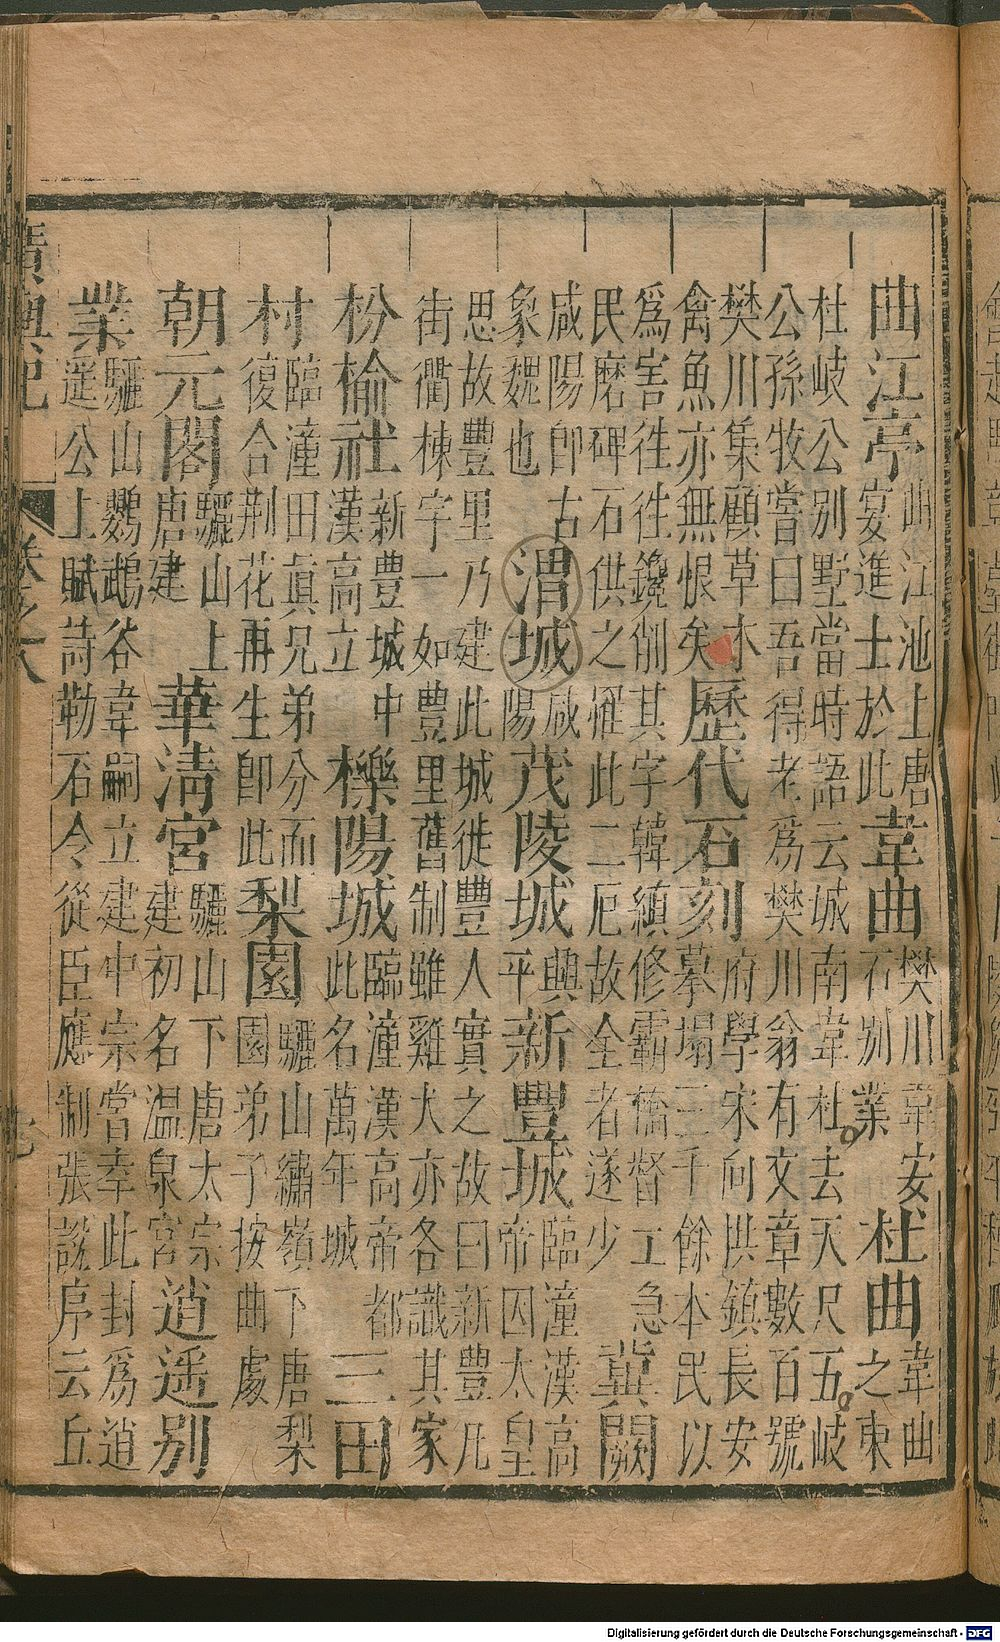 曲江亭
曲江池上唐
宴進士於此
韋曲
樊川韋安
石別業
杜曲
韋曲
之東
杜岐公別墅當時語云城南韋杜去天尺五岐
公孫牧嘗曰吾得老爲樊川翁有文章數百號
樊川集顧草木
禽魚亦無恨矣
歷代石刻
府學宋向拱鎮長安
摹塌三千餘本民以
爲害往往鑱削其字韓縝修霸橋督工急
民磨碑石供之懼此二厄故全者遂少
冀闕
咸陽即古
象魏也
渭城
咸
陽
茂陵城
興
平
新豐城
臨潼漢高
帝因太皇
思故豐里乃建此城徙豐人實之故曰新豐凡
街衢棟宇一如豐里舊制雖雞犬亦各識其家
枌榆社
新豐城中
漢高立
櫟陽城
臨潼漢高帝都
此名萬年城
三田
村
臨潼田眞兄弟分而
復合荆花再生即此
梨園
驪山繡嶺下唐梨
園弟子按曲處
朝元閣
驪山上
唐建
華清宮
驪山下唐太宗
建初名温泉宮
逍遥別
業
驪山鸚鵡谷韋嗣立建中宗嘗幸此封爲逍
遥公上賦詩勒石令從臣應制張說序云丘
廣輿記 卷之八
Digitalisierung gefördert durch die Deutsche Forschungsgemeinschaft - DFG